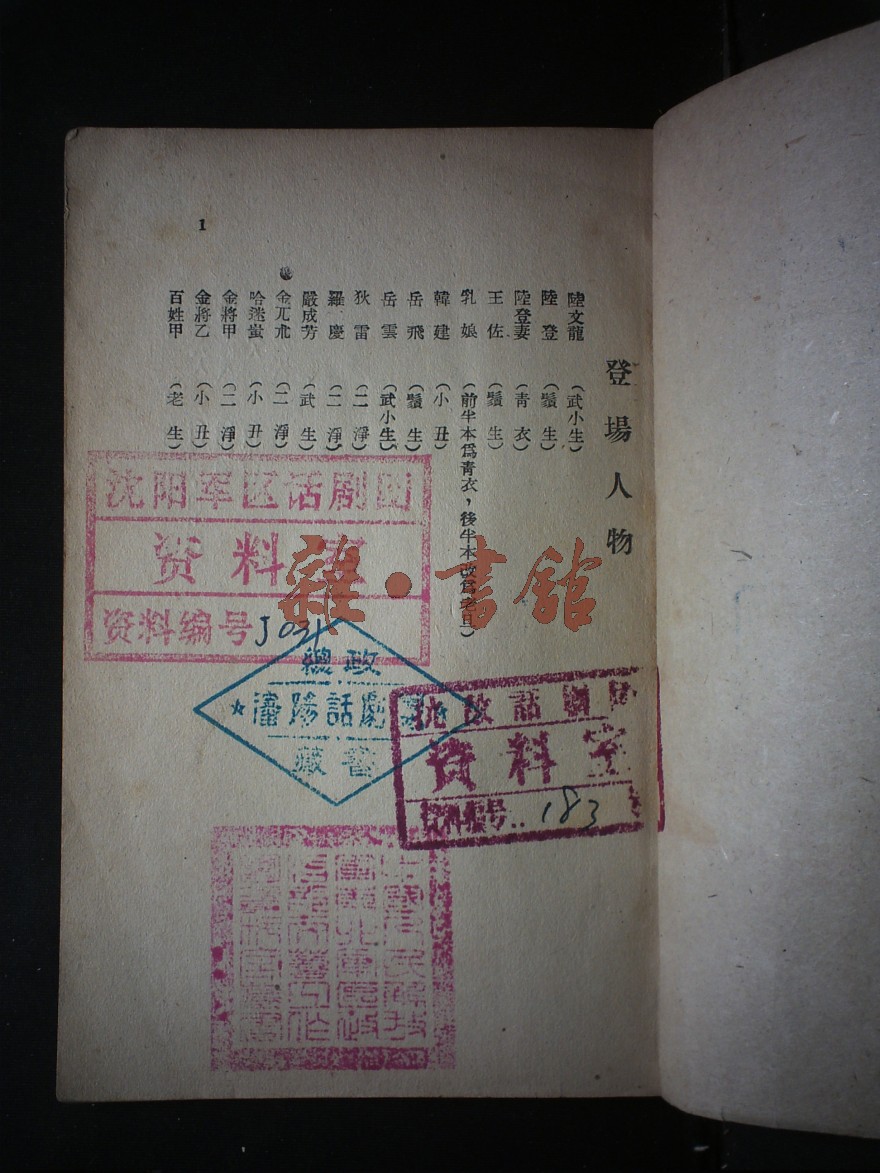 登場人物
陸文龍 (武小生)
陸登 (鬚生)
陸登妻 (青衣)
王佐 (鬚生)
乳娘 (前半本爲青衣,後半本改爲老旦)
韓建 (小丑)
岳飛 (鬚生)
岳雲 (武小生)
狄雷 (二淨)
羅慶 (二淨)
嚴成芳 (武生)
金兀朮 (二淨)
哈迷蚩 (小丑)
金將甲 (二淨)
金將乙 (小丑)
百姓甲 (老生)
1
沈阳军区话剧团
资料室
资料编号 J031
雜·書館
總政
瀋陽話劇團
藏書
资料室
资料编号 183